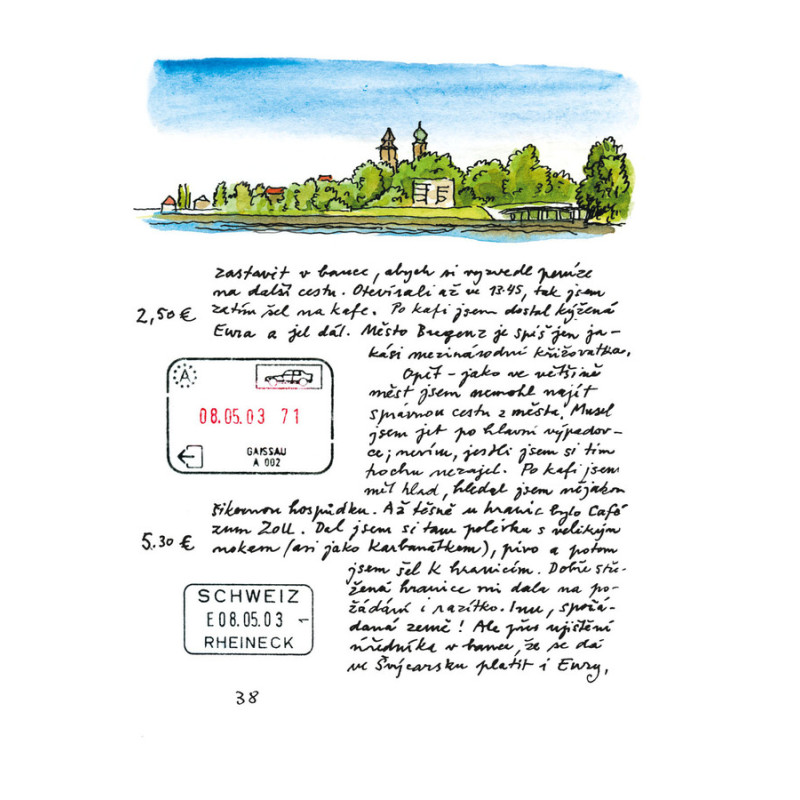 zastavit v bance, abych si vyzvedl peníze
na další cestu. Otevírali až ve 13.45, tak jsem
2,50 € zatím šel na kafe. Po kafi jsem dostal kýžená
Eura a jel dál. Město Bregenz je spíš jen ja-
kási mezinárodní křižovatka.
Opět - jako ve většině
měst jsem nemohl najít
správnou cestu z města. Musel
jsem jet po hlavní výpadov-
ce; nevím, jestli jsem si tím
trochu nezajel. Po kafi jsem
měl hlad, hledal jsem nějakou
A
08.05.03 71
GAISSAU
A 002
šikovnou hospůdku. Až těsně u hranic bylo Café
zum Zoll. Dal jsem si tam polévku s velikým
5.30 € nokem (asi jako karbanátkem), pivo a potom
jsem šel k hranicím. Dobře stře-
žená hranice mi dala na po-
žádání i razítko. Inu, spořá-
daná země! Ale přes ujištění
úředníka v bance, že se dá
ve Švýcarsku platit i Eury,
SCHWEIZ
E 08.05.03 1
RHEINECK
38